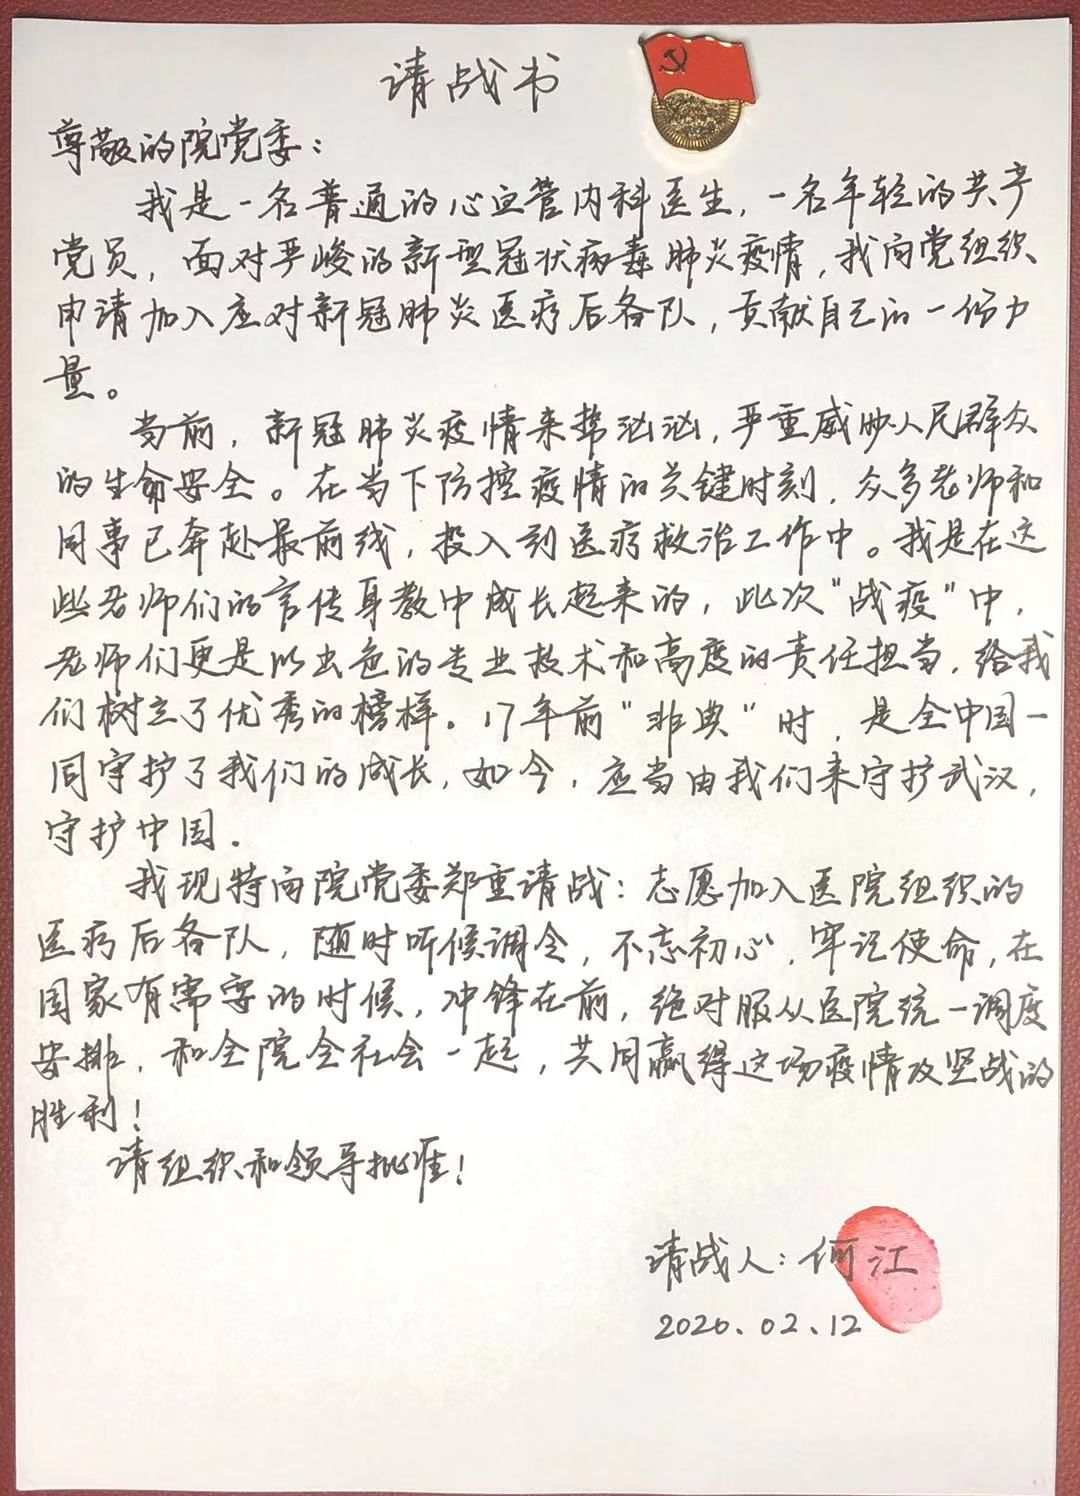 请战书
尊敬的院党委：
我是一名普通的心血管内科医生，一名年轻的共产
党员，面对严峻的新型冠状病毒肺炎疫情，我向党组织
申请加入应对新冠肺炎医疗后备队，贡献自己的一份力
量。
当前，新冠肺炎疫情来势汹汹，严重威胁人民群众
的生命安全。在当下防控疫情的关键时刻，众多老师和
同事已奔赴最前线，投入到医疗救治工作中。我是在这
些老师们的言传身教中成长起来的，此次“战疫”中，
老师们更是以出色的专业技术和高度的责任担当，给我
们树立了优秀的榜样。17年前“非典”时，是全中国一
同守护了我们的成长，如今，应当由我们来守护武汉，
守护中国。
我现特向院党委郑重请战：志愿加入医院组织的
医疗后备队，随时听候调令，不忘初心，牢记使命，在
国家有需要的时候，冲锋在前，绝对服从医院统一调度
安排，和全院全社会一起，共同赢得这场疫情攻坚战的
胜利！
请组织和领导批准！
请战人：何江
2020.02.12